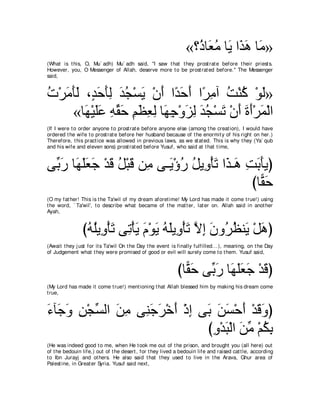 «مَا هَذَا يَا مُعَاذُ؟»
(What is this, O, Mu`adh) Mu`adh said, "I saw that they prostrate before their priests.
However, you, O Messenger of Allah, deserve more to be prostrated before." The Messenger
said,
«لَوْ كُنْتُ آمِرًا أَحَدًا أَنْ يَسْجُدَ لِأَحَدٍ، لَأَمَرْتُ
الْمَرْأَةَ أَنْ تَسْجُدَ لِزَوْجِهَا لِعِظَمِ حَقِّهِ عَلَيْهَا»
(If I were to order anyone to prostrate before anyone else (among the creation), I would have
ordered the wife to prostrate before her husband because of the enormity of his right on her.)
Therefore, this practice was allowed in previous laws, as we stated. This is why they (Ya`qub
and his wife and eleven sons) prostrated before Yusuf, who said at that time,
(يأَبَتِ هَـذَا تَأْوِيلُ رُؤْيَـى مِن قَبْلُ قَدْ جَعَلَهَا رَبِّى
حَقًّا)
(O my father! This is the Ta'wil of my dream aforetime! My Lord has made it come true!) using
the word, `Ta'wil", to describe what became of the matter, later on. Allah said in another
Ayah,
(هَلْ يَنظُرُونَ إِلاَّ تَأْوِيلَهُ يَوْمَ يَأْتِى تَأْوِيلُهُ)
(Await they just for its Ta'wil On the Day the event is finally fulfilled...), meaning, on the Day
of Judgement what they were promised of good or evil will surely come to them. Yusuf said,
(قَدْ جَعَلَهَا رَبِّى حَقًّا)
(My Lord has made it come true!) mentioning that Allah blessed him by making his dream come
true,
(وَقَدْ أَحْسَنَ بَى إِذْ أَخْرَجَنِى مِنَ السِّجْنِ وَجَآءَ
بِكُمْ مِّنَ الْبَدْوِ)
(He was indeed good to me, when He took me out of the prison, and brought you (all here) out
of the bedouin life,) out of the desert, for they lived a bedouin life and raised cattle, according
to Ibn Jurayj and others. He also said that they used to live in the Arava, Ghur area of
Palestine, in Greater Syria. Yusuf said next,